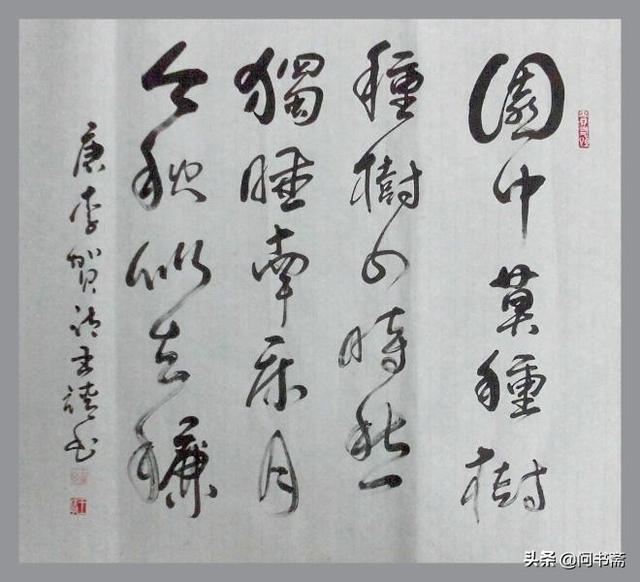 園中莫種樹
種樹四時愁
獨睡南床月
今秋似去秋
唐李賀詩書
头条 @问书斋